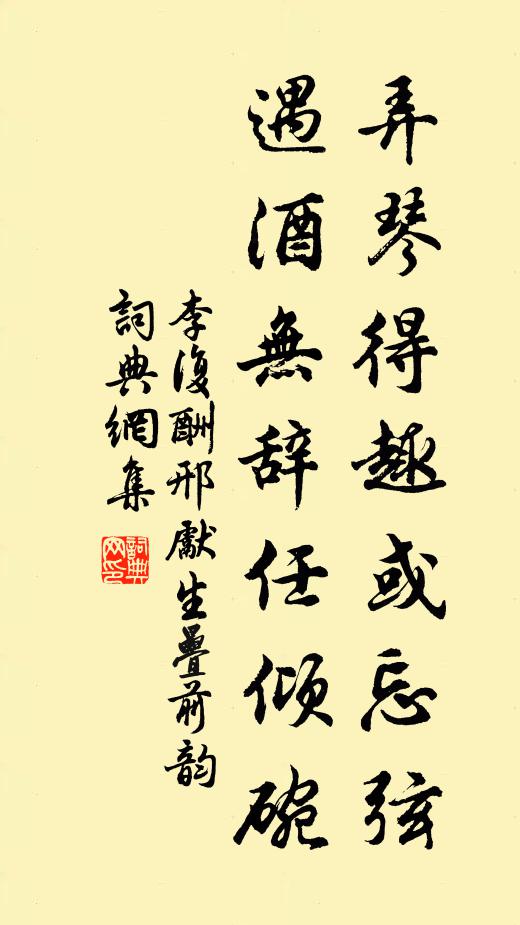 弄琴得趣或忘弦
遇酒無辞任倾碗
李復酬邢獻生疊前韵
詞典網集
詞典网印